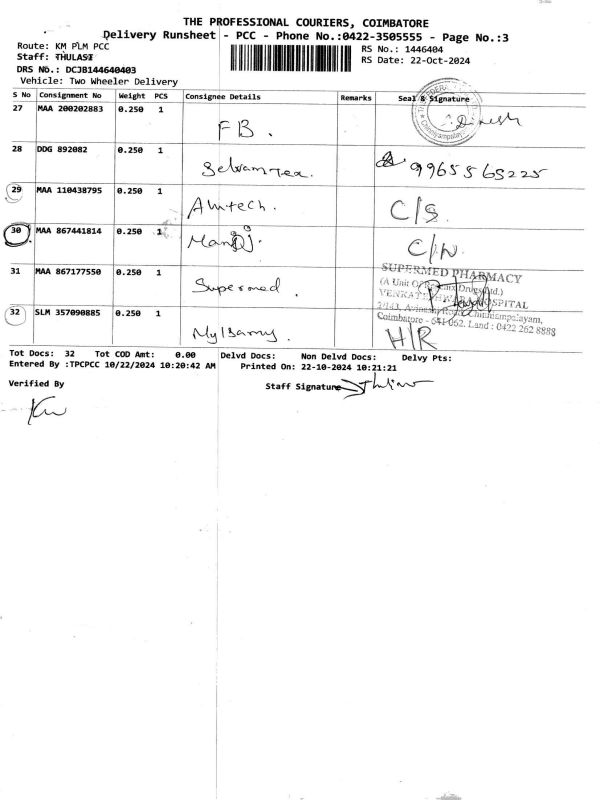 THE PROFESSIONAL COURIERS, COIMBATORE
Delivery Runsheet - PCC - Phone No.:0422-3505555 - Page No.:3
Route: KM PLM PCC
RS No.: 1446404
Staff: THULASI
RS Date: 22-Oct-2024
DRS No.: DCJB144640403
Vehicle: Two Wheeler Delivery
S No Consignment No Weight PCS Consignee Details Remarks Seal & Signature
27 MAA 200202883 0.250 1 FB. Dinesh
28 DDG 892082 0.250 1 Selvamtex. 9965565225
29 MAA 110438795 0.250 1 Amtech. C/S.
30 MAA 867441814 0.250 1 C/N.
31 MAA 867177550 0.250 1 Supermed.
SUPERMED PHARMACY
(A Unit Of Drugs Ltd.)
HOSPITAL
Coimbatore - 641 062. Land : 0422 262 8888
32 SLM 357090885 0.250 1 Mylsamy. H/R
Tot Docs: 32 Tot COD Amt: 0.00 Delvd Docs: Non Delvd Docs: Delvy Pts:
Entered By :TPCPCC 10/22/2024 10:20:42 AM Printed On: 22-10-2024 10:21:21
Verified By
Staff Signature